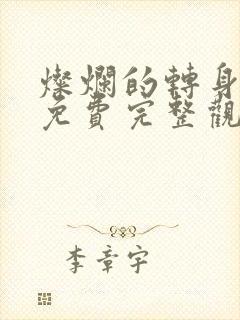 燦爛的轉身
免費完整觀
李章宇